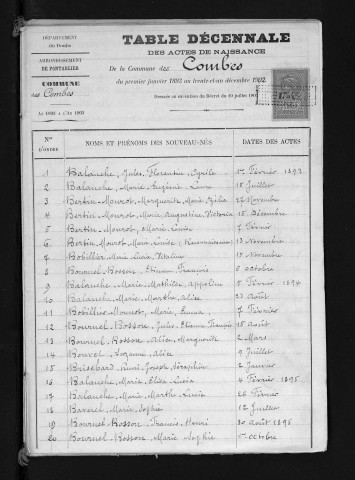 DÉPARTEMENT
du Doubs
TABLE DÉCENNALE
DES ACTES DE NAISSANCE
ARRONDISSEMENT
DE PONTARLIER
De la Commune des Combes
COMMUNE
des Combes
du premier janvier 1893 au trente-et-un décembre 1902.
Dressée en exécution du Décret du 20 juillet
An 1893 à l'An 1902
Nos D'ORDRE NOMS ET PRÉNOMS DES NOUVEAU-NÉS DATES DES ACTES
1 Balanche, Jules Florentin Cyrile Février 1893
2 Balanche, Marie Eugénie Lucie 18 Juillet
3 Bertin-Mourot, Marguerite Marie 27 Novembre
4 Bertin-Mourot, Marie Augustine Victoria 15 Décembre
5 Bertin-Mourot, Marie Louise 7 Février
6 Bertin-Mourot Marie Louise (Reconnaissance) 13 Novembre
7 Bobillier Marie Lucie 19 Novembre
8 Bournel-Bosson, Etienne François 6 Octobre
9 Balanche, Marie Mathilde Appoline 5 Février 1894
10 Balanche, Marie Marthe Alice 23 Août
11 Bobillier Monnot, Marie, Emma 7 Février
12 Bournel-Bosson, Jules Etienne François 15 Août
13 Bournel-Bosson Alice Marguerite 2 Mars
14 Bouvet, Suzanne, Alice 9 Juillet
15 Brisebard, Henri Joseph Séraphin 2 Janvier
16 Balanche, Marie Eliza Lucia 4 Février 1895
17 Balanche, Marie Marthe Lucie 26 Février
18 Baverel Marie Sophie 12 Juillet
19 Bournel-Bosson Francis Henri 30 Août 1896
20 Bournel-Bosson, Marie Sophie Octobre